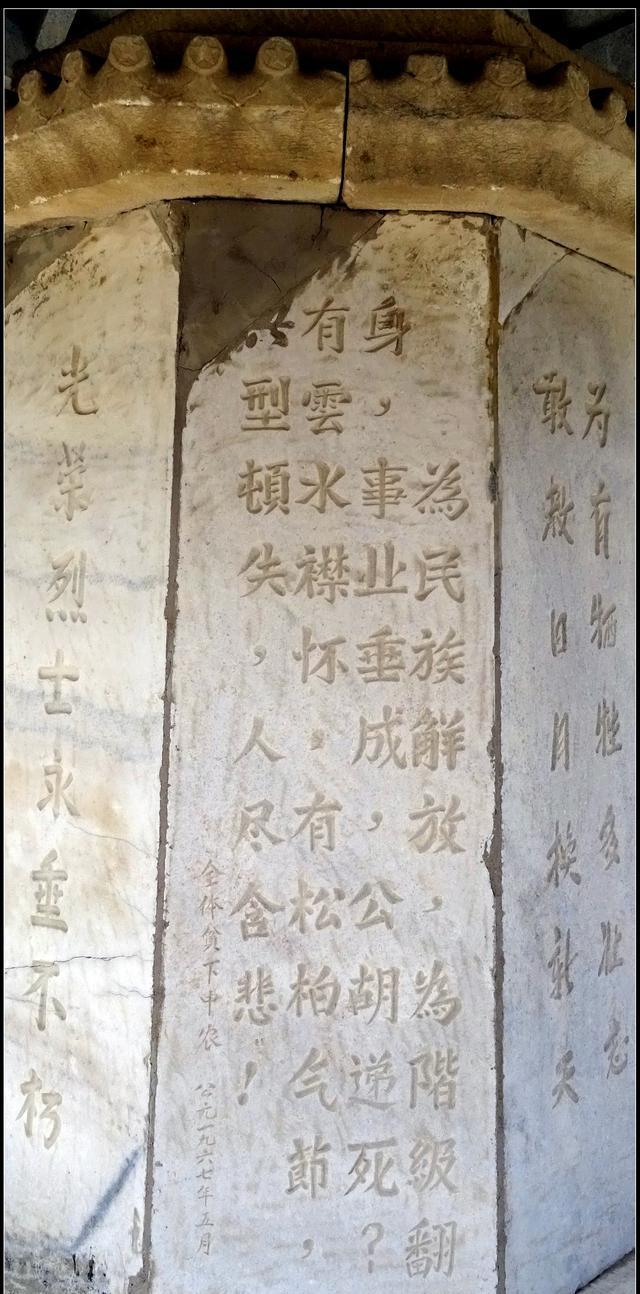 为有牺牲多壮志
敢教日月换新天
為民族解放，為階級翻
身，事业垂成，公胡递死？
有雲水襟怀，有松柏气節，
型頓失，人尽含悲！
全体贫下中农 公元一九六七年五月
光荣烈士永垂不朽